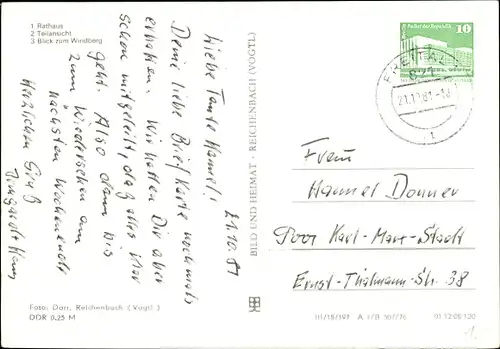 1 Rathaus
2 Teilansicht
3 Blick zum Windberg
Liebe Tante Hannel! 21.10.81
Deine liebe Brief Karte nochmals
erhalten. Wir hatten Dir aber
schon mitgeteilt, daß alles klar
geht. Also dann bis
zum Wiedersehen am
nächsten Wochenende
Herzlichen Gruß
Foto: Darr, Reichenbach (Vogtl.)
DDR 0,25 M
BILD UND HEIMAT · REICHENBACH (VOGTL)
Palast der Republik 10
FREITAL
821
21.10.81-18
1
Frau
Hannel Donner
9001 Karl-Marx-Stadt
Ernst-Thälmann-Str. 38
III/18/197 A 1/B 507/76 01 12 08 120